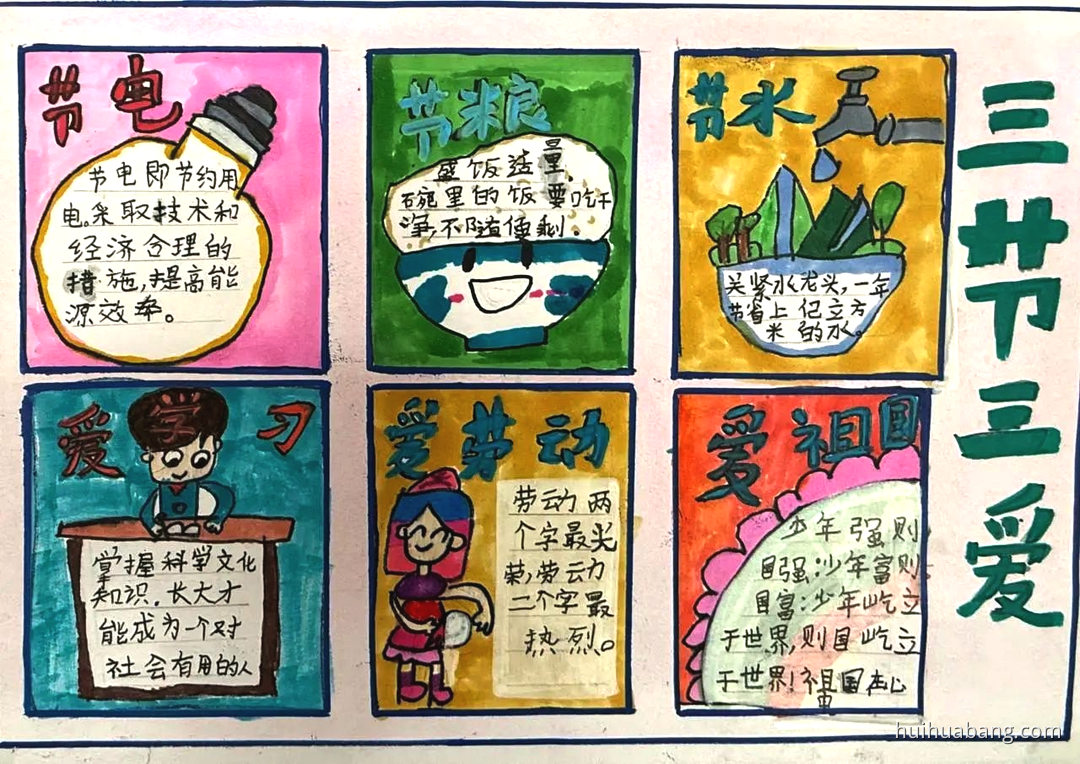 三节三爱
节电
节电即节约用
电。采取技术和
经济合理的
措施,提高能
源效率。
节粮
盛饭适量,
碗里的饭要吃干
净,不随便剩.
节水
关紧水龙头,一年
节省上亿立方
米的水。
爱学习
掌握科学文化
知识.长大才
能成为一个对
社会有用的人
爱劳动
劳动两
个字最光
荣,劳动
二个字最
热烈。
爱祖国
少年强则
国强:少年富则
国富:少年屹立
于世界,则国屹立
于世界!祖国在心
中
huihuabang.com